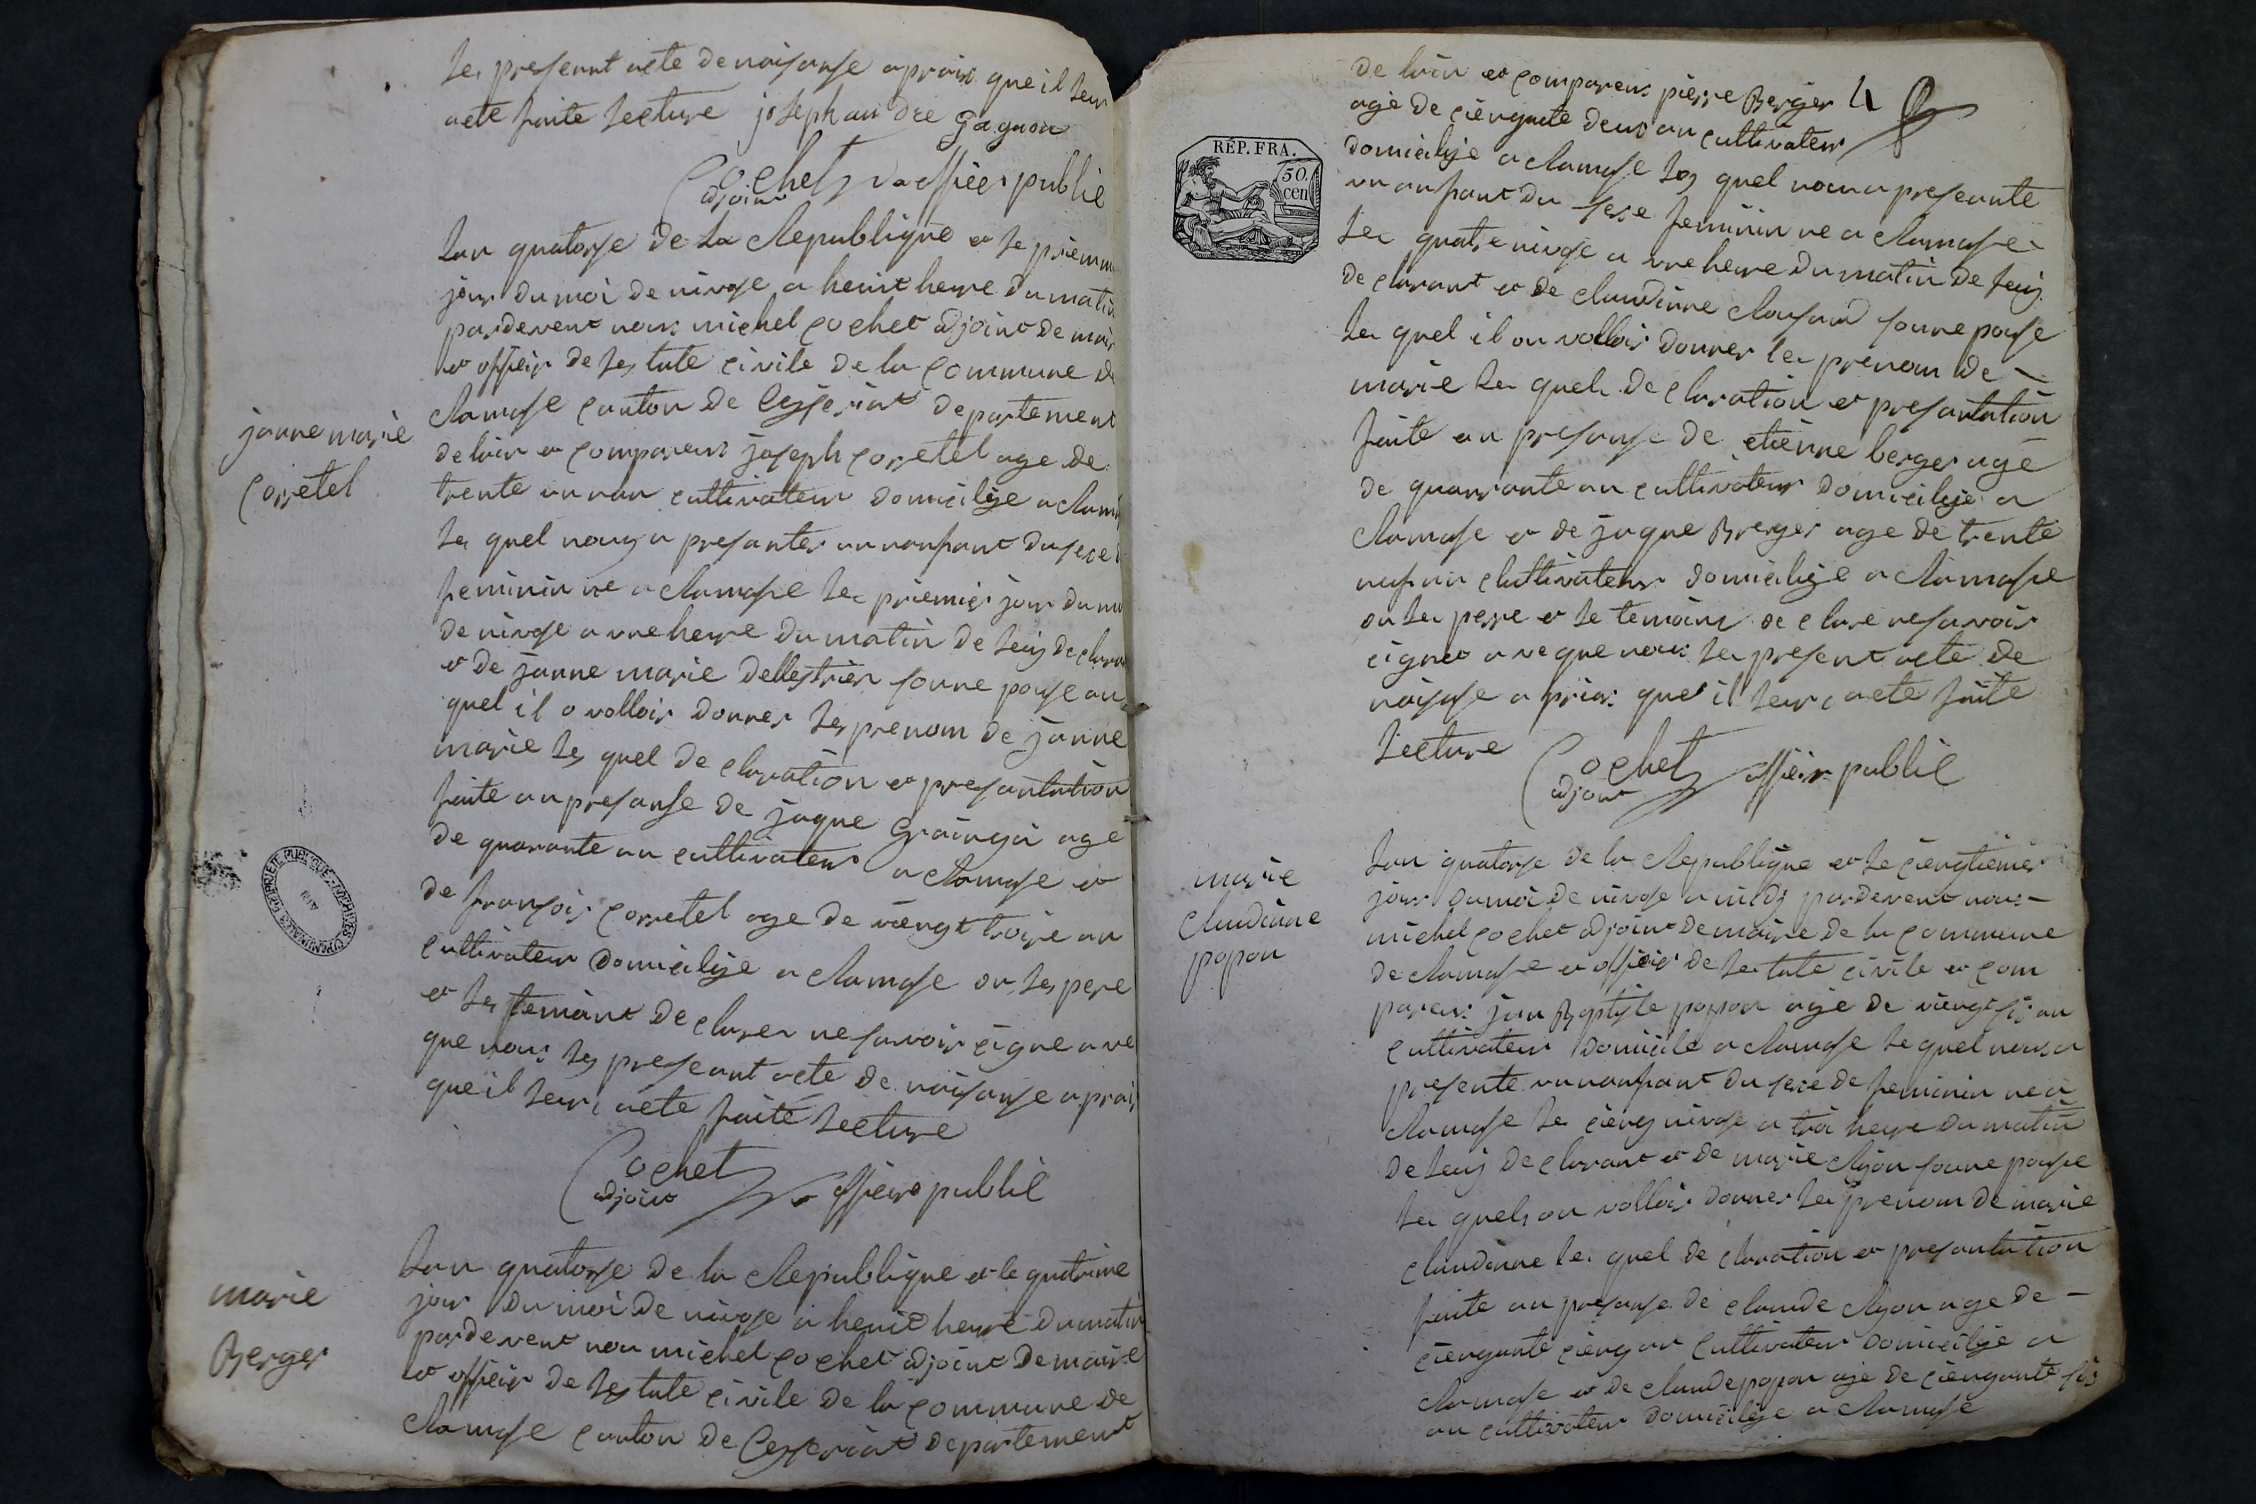 les preseant acte de naisanse aprais que il leur
acte faite lecture joseph an dre gagnon
Cochet adjoint officier publie
lan quatorse de la Republique et le premie
jour du moi de nivose a heuit heure du matin
pardevent nous michel cochet adjoint de maire
et officir de les tate civile de la commune de
Ramase canton de Ceyseriat departement
de lain et comparens joseph corretel age de
trente un nan cultivateur domicilije a Rama
le quel nous a presanter un nanfant du sexe
feminin ne a Ramase le premier jour du mo
de nivose a une heure du matin de luij declaran
et de janne marie dellestrier sonne pouse au
quel il a volloir donner les prenom de janne
marie les quel declaration et presantation
faite an presanse de jaque Graingir age
de quarante an cultivateur a Ramase et
de fransois corretel age de viengt troise an
cultivateur domicilije a Ramase ou les pere
et les temoint declarer ne savoir cigne a ve
que nous les preseant acte de naisanse a prais
que il leur acte faite lecture
Cochet adjoint officire publie
janne marie
corretel
lan quatorse de la Republique et le quatrieme
jour du moi de nivose a heuit heure du matin
pardevent nou michel cochet adjoint de maire
et officir de les tate civile de la commune de
Ramase canton de Ceyseriat departement
marie
Berger
PROPRIETE PUBLIQUE
RÉP. FRA.
50.
cen
4
de lain et comparens pierre Berger
age de ciengante deux an cultivateur
domicilije a Ramase les quel nous a preseante
un anfant du sexe feminin ne a Ramase
le quatre nivose a une heure du matin de luij
declarant et de claudinne sonne pouse
le quel il on volloir donner le prenom de
marie le quel declaration et presantation
faite an presanse de etienne berger age
de quarrante an cultivateur domicilije a
Ramase et de jaque Berger age de trente
neuf an cultivateur domicilije a Ramase
ou le perre et le temoins declare ne savoir
cigner a ve que nous le present acte de
naisase a prais que il leur acte faite
lecture
Cochet adjoint officir publie
lan quatorse de la Republique et le ciengtiemer
jour du moi de nivose a midij pardevent nous
michel cochet adjoint de maire de la commune
de Ramase et officir de les tate civile et com
parens jan Baptiste popon age de viengt sis an
cultivateur domicile a Ramase le quel nous a
presente un nanfant du sexe de feminin ne a
Ramase le cieng nivose a troi heure du matin
de luij declarant et de marie Rijon sonne pouse
le quel on volloir donner le prenom de marie
claudinne le quel declaration et presantation
faite an presanse de claude Rijon age de
ciengante cieng an cultivateur domicilije a
Ramase et de claude popon age de ciengante sis
an cultivateur domicilije a Ramase
marie
claudinne
popon